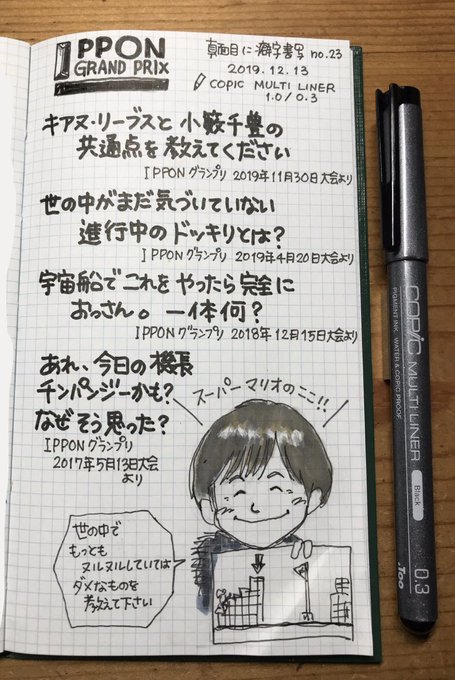 IPPON
GRAND PRIX
真面目に漢字書写 no.23
2019.12.13
COPIC MULTI LINER
1.0/0.3
キアヌ・リーブスと小籔千豊の
共通点を教えてください
IPPONグランプリ 2019年11月30日大会より
世の中がまだ気づいていない
進行中のドッキリとは?
IPPONグランプリ 2019年4月20日大会より
宇宙船でこれをやったら完全に
おっさん。一体何?
IPPONグランプリ 2018年12月15日大会より
あれ、今日の機長
チンパンジーかも?
なぜそう思った?
IPPONグランプリ
2017年5月13日大会
より
スーパーマリオのここ!!
世の中で
もっとも
ヌルヌルしていては
ダメなものを
教えて下さい
COPIC MULTILINER
PIGMENT INK WATER & COPIC PROOF
Black
0.3
.Too